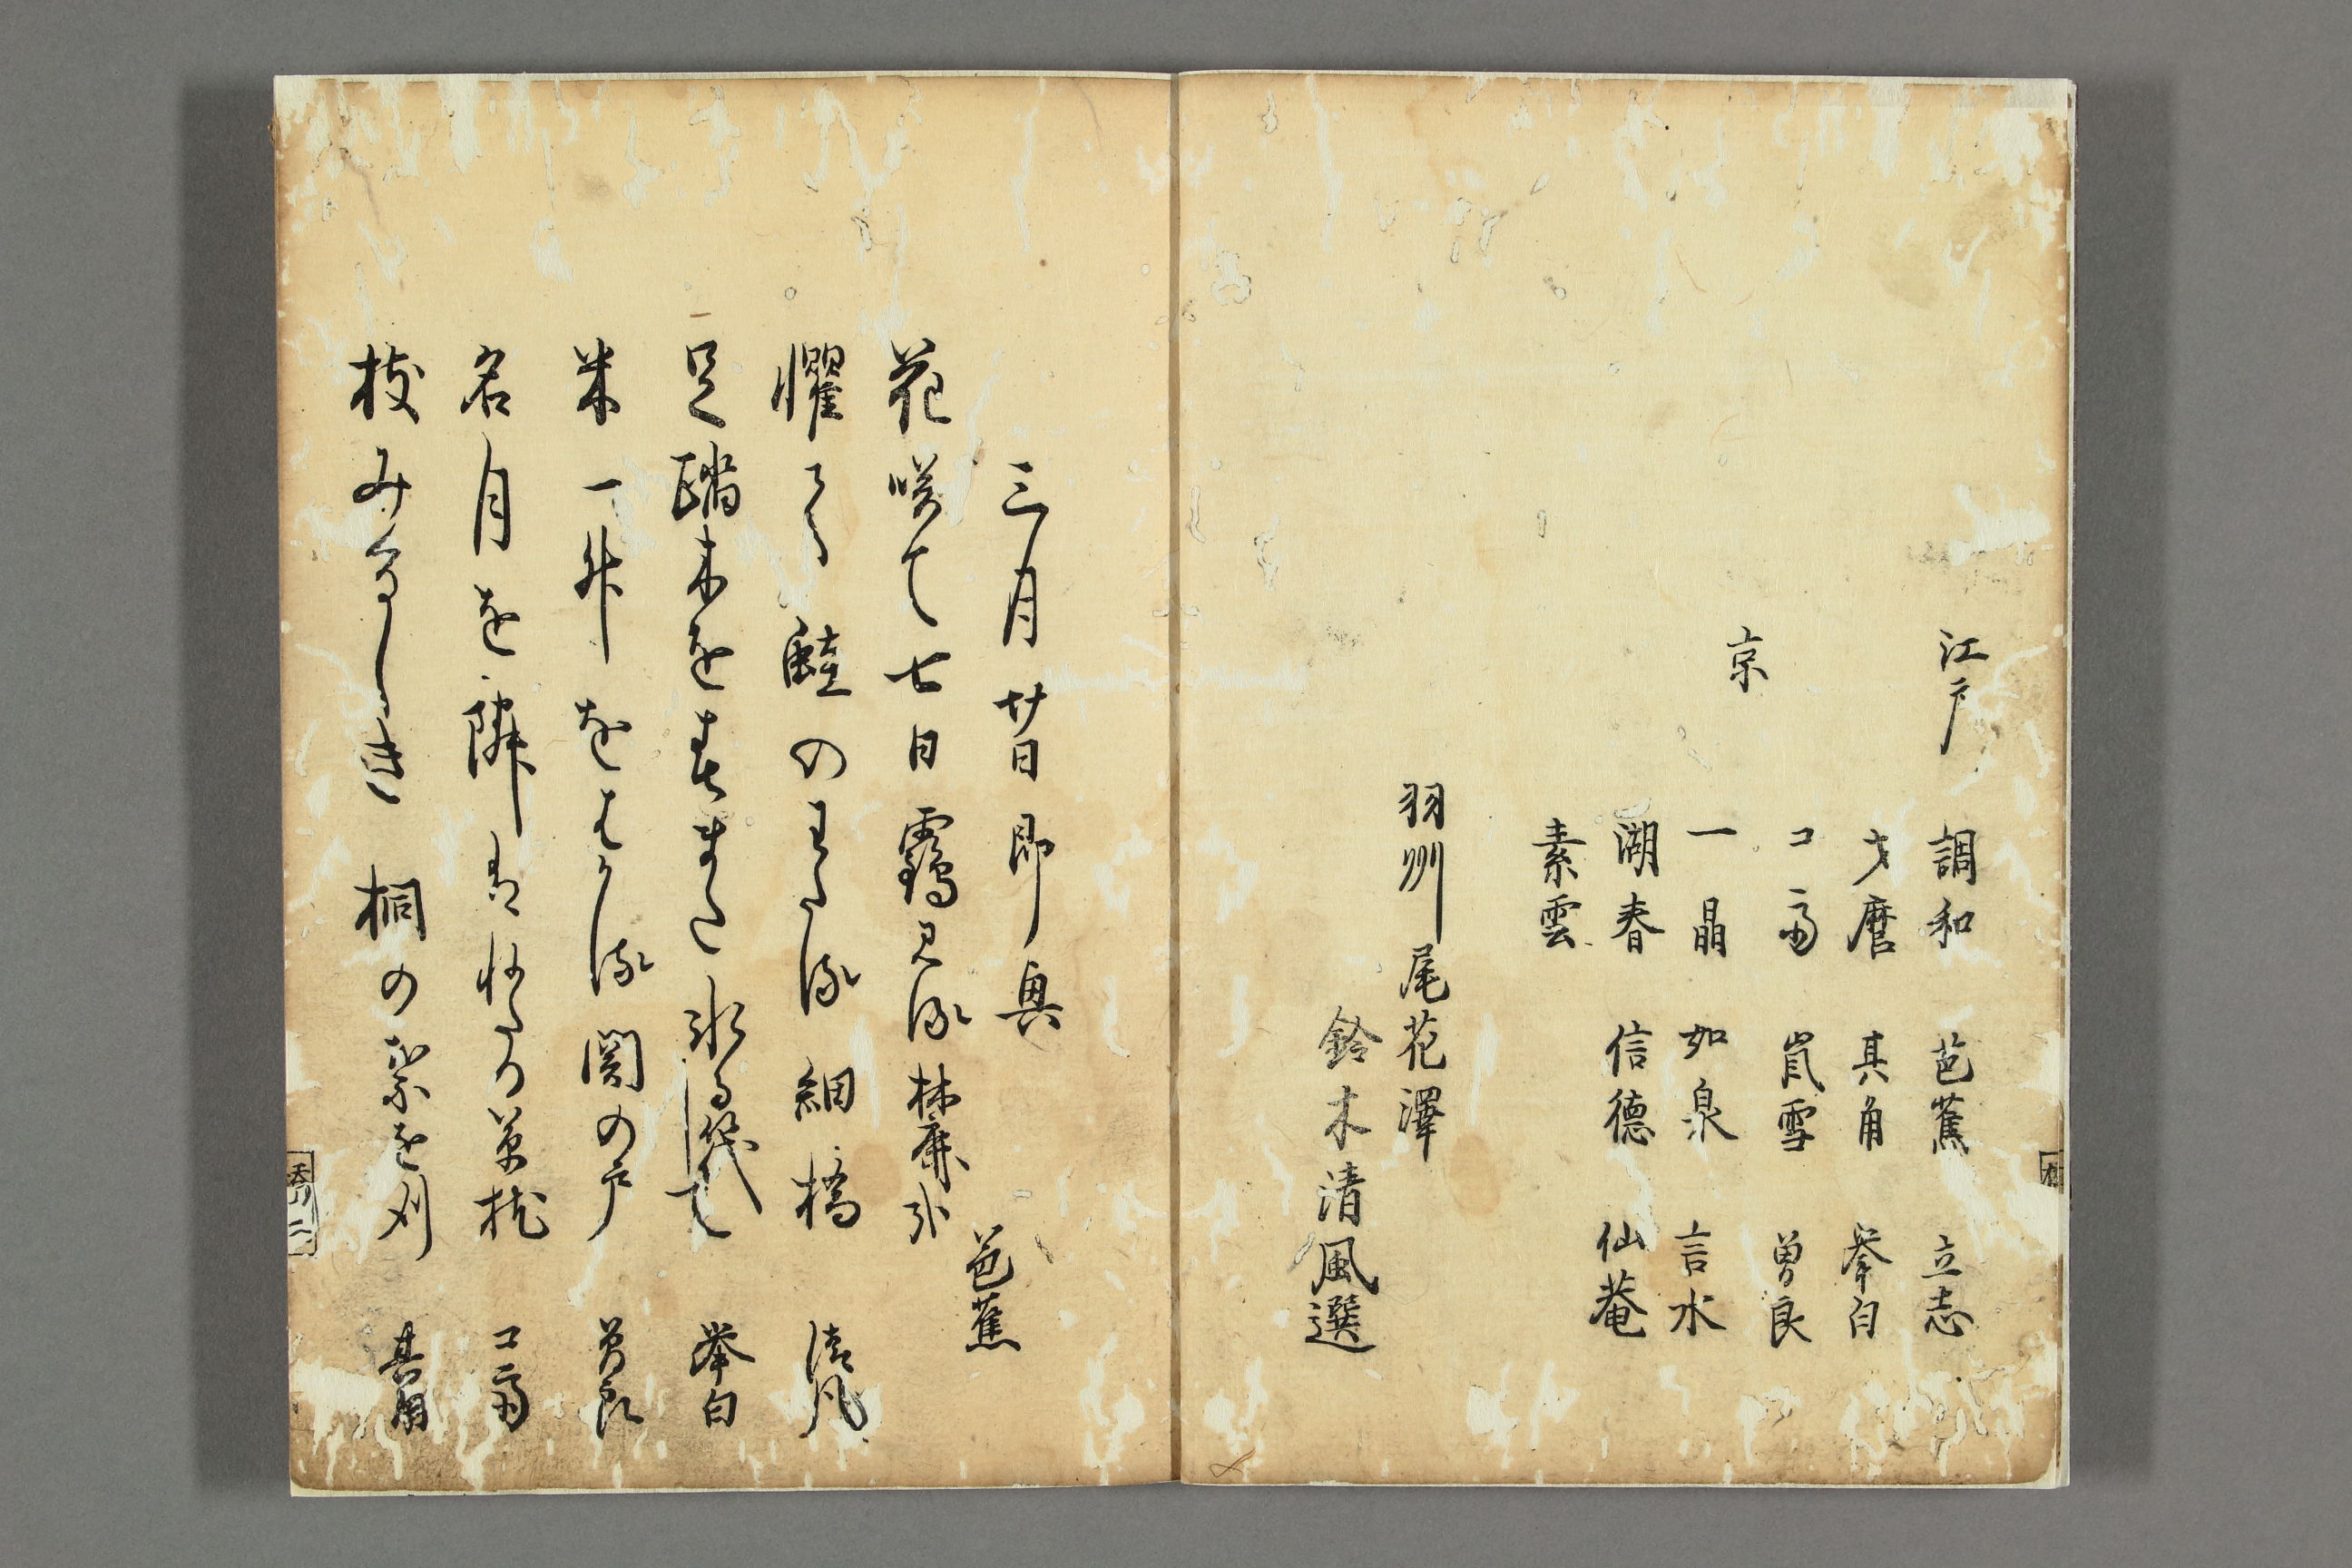 江戸 調和 芭蕉 立志
才麿 其角 挙白
コ斎 嵐雪 曽良
京 一晶 如泉 言水
湖春 信徳 仙菴
素雲
羽州尾花澤
鈴木清風選
三月廿日即興
芭蕉
花咲て七日靏見る麓哉
懼て蛙のわたる細橋 清風
足踏木を春また氷る筏して 挙白
米一升をはかる関の戸 曽良
名月を隣はねたる草枕 コ斎
枝みくるしき桐の葉を刈 其角